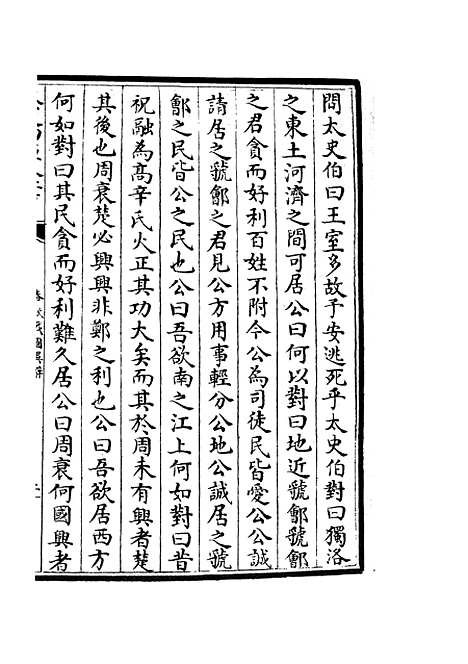 問太史伯曰王室多故予安逃死乎太史伯對曰獨洛
之東土河濟之間可居公曰何以對曰地近虢鄶虢鄶
之君貪而好利百姓不附今公為司徒民皆愛公公誠
請居之虢鄶之君見公方用事輕分公地公誠居之虢
鄶之民皆公之民也公曰吾欲南之江上何如對曰昔
祝融為髙辛氏火正其功大矣而其於周未有興者楚
其後也周衰楚必興興非鄭之利也公曰吾欲居西方
何如對曰其民貪而好利難久居公曰周衰何國興者
春秋戰國異辭